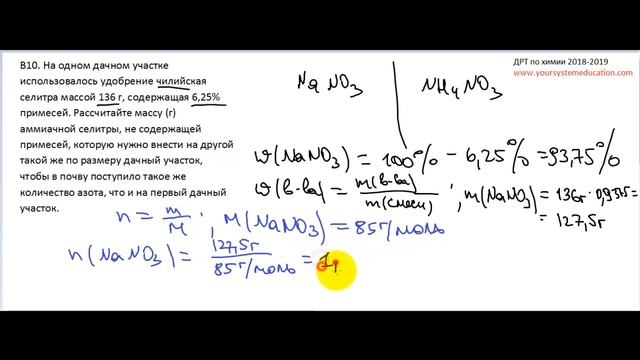 ДРТ по химии 2018-2019
www.yoursystemeducation.com
В10. На одном дачном участке
использовалось удобрение чилийская
селитра массой 136 г, содержащая 6,25%
примесей. Рассчитайте массу (г)
аммиачной селитры, не содержащей
примесей, которую нужно внести на другой
такой же по размеру дачный участок,
чтобы в почву поступило такое же
количество азота, что и на первый дачный
участок.
NaNO3 | NH4NO3
w(NaNO3) = 100% - 6,25% = 93,75%
w(в-ва) = m(в-ва) / m(смеси) ; m(NaNO3) = 136г · 0,9375 =
= 127,5г
n = m / M ; M(NaNO3) = 85г/моль
n(NaNO3) = 127,5г / 85г/моль = 1,